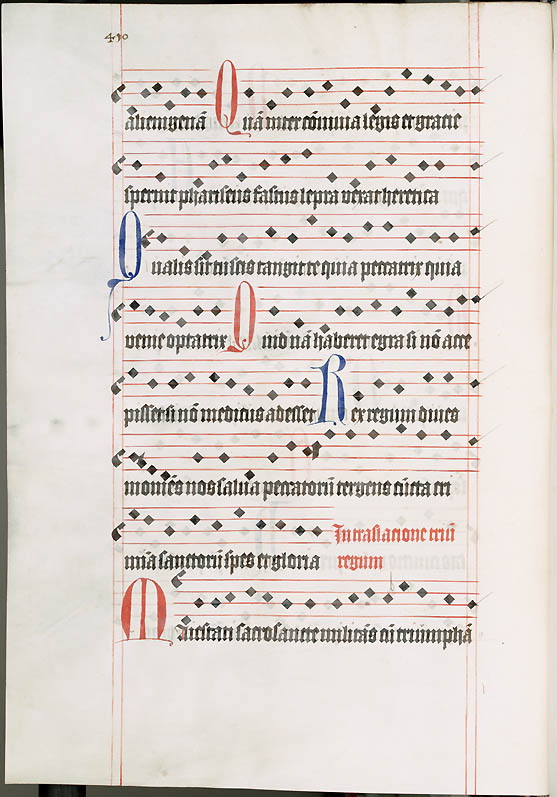 430
alienigenā Quā inter cōuiuia legis et gracie
spernit phariseus fastus lepra vexat heretica
Qualis sit tu scis tangit te quia peccatrix quia
venie optatrix Quid nā haberet egra si nō acce
pisset si nō medicus adesset Rex regum diues
in om̄es nos salua peccatorū tergens cūcta cri
mīa sanctorū spes et gloria In traslacione triū
regum
Maiestati sacrosancte militās cū triūmphā